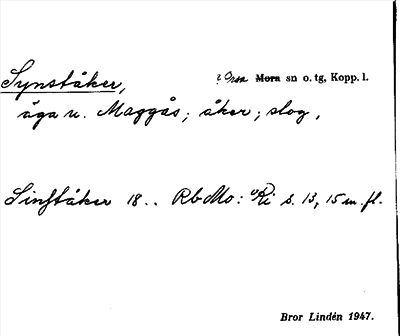 Synståker, i Orsa Mora sn o. tg, Kopp. l.
äga n. Maggås; åker; slog,
Sinståker 18.. RbMo: Ri s. 13, 15 m. fl.
Bror Lindén 1947.